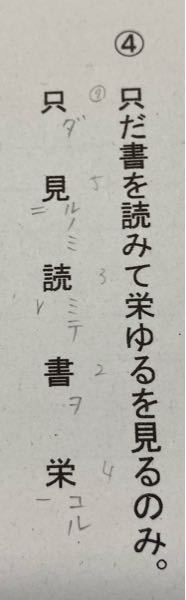 ④ 只だ書を読みて栄ゆるを見るのみ。
5 3 2 4
只見読書栄
ダ ルノミ ミテ ヲ コル
二 レ 一